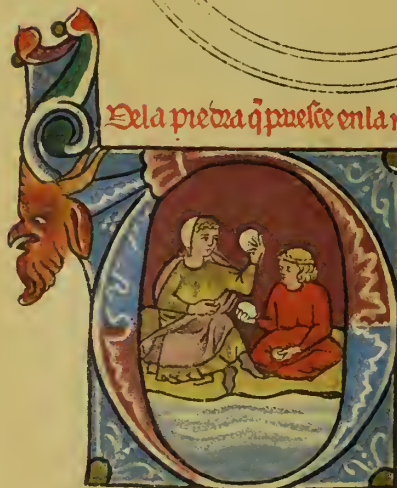 Dela piedra q̃ paresce en la